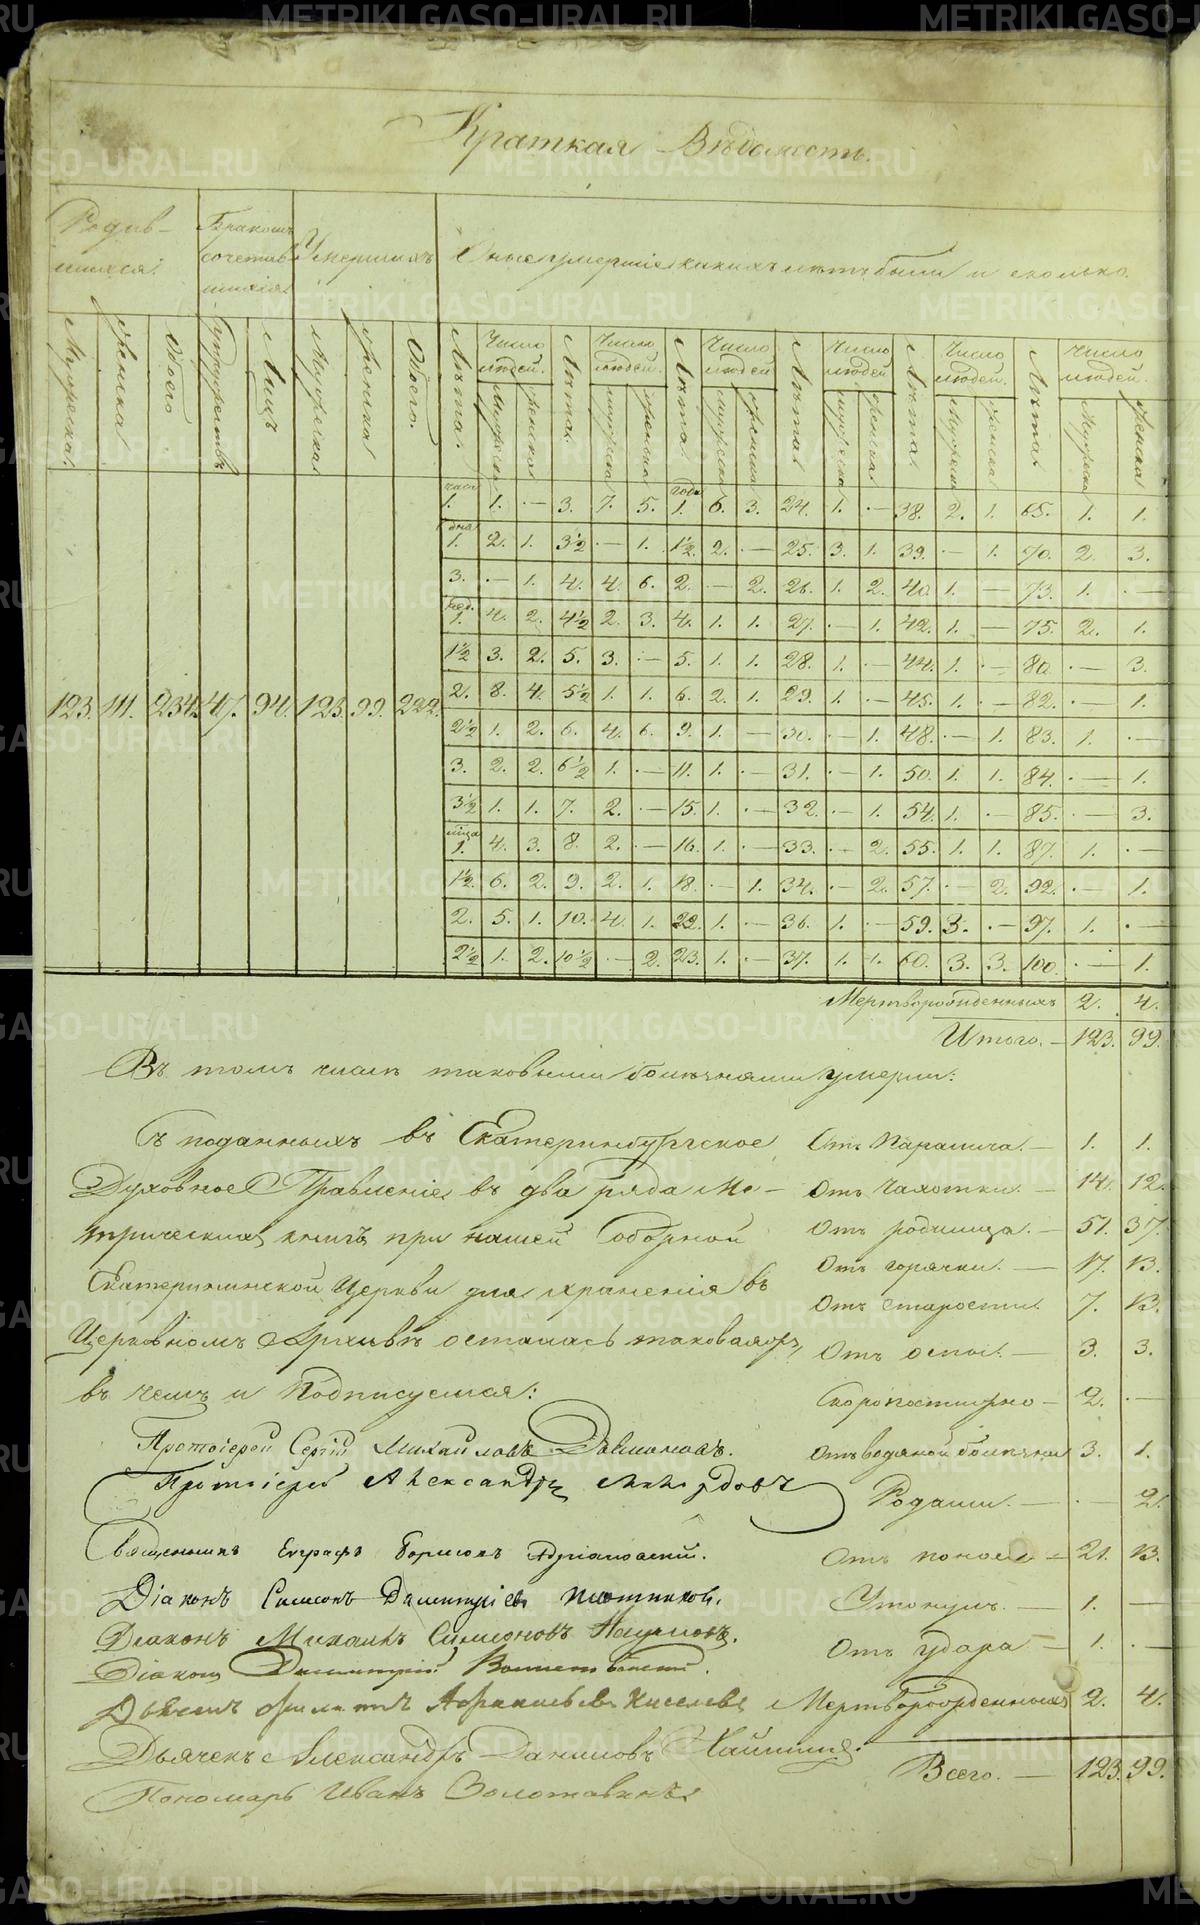 Краткая Вѣдомость.
Родив-
шихся.
Бракомъ
сочетав-
шихся
Умершихъ
Оные умершіе какихъ лѣтъ были и сколько
Мужеска. Женска Обоего Супружествъ Лицъ Мужеска Женска Обоего.
Лѣта. Число людей. Лѣта. Число людей. Лѣта Число людей Лѣта Число людей Лѣта. Число людей. Лѣта Число людей.
Мужеска Женска Мужеска Женска Мужеска Женска Мужеска Женска Мужеска Женска Мужеска Женска
123. 111. 234. 47. 94. 123. 99. 222.
часа 1. 1. — 3. 7. 5. года 1. 6. 3. 24. 1. — 38. 2. 1. 65. 1. 1.
дня 1. 2. 1. 3½ — 1. 1½ 2. — 25. 3. 1. 39. — 1. 70. 2. 3.
3. — 1. 4. 4. 6. 2. — 2. 26. 1. 2. 40. 1. — 73. 1. —
нед. 1. 4. 2. 4½ 2. 3. 4. 1. 1. 27. — 1. 42. 1. — 75. 2. 1.
1½ 3. 2. 5. 3. — 5. 1. 1. 28. 1. — 44. 1. — 80. — 3.
2. 8. 4. 5½ 1. 1. 6. 2. 1. 29. 1. — 45. 1. — 82. — 1.
2½ 1. 2. 6. 4. 6. 9. 1. — 30. — 1. 48. — 1. 83. 1. —
3. 2. 2. 6½ 1. — 11. 1. — 31. — 1. 50. 1. 1. 84. — 1.
3½ 1. 1. 7. 2. — 15. 1. — 32. — 1. 54. 1. — 85. — 3.
мца 1. 4. 3. 8. 2. — 16. 1. — 33. — 2. 55. 1. 1. 87. 1. —
1½. 6. 2. 9. 2. 1. 18. — 1. 34. — 2. 57. — 2. 92. — 1.
2. 5. 1. 10. 4. 1. 22. 1. — 36. 1. — 59. 3. — 97. 1. —
2½ 1. 2. 10½ — 2. 23. 1. — 37. 1. 1. 60. 3. 3. 100. — 1.
Мертворожденныхъ 2. 4.
Итого. — 123. 99.
Въ томъ числѣ таковыми болѣзнями умерли:
Съ поданныхъ въ Екатеринбургское
Духовное Правленіе въ два ряда Ме-
трическихъ книгъ при нашей Соборной
Екатерининской Церкви для храненія въ
Церковномъ Архивѣ осталась таковая
въ чемъ и Подписуемся:
Протоіерей Сергій Михайловъ
Протоіерей Александръ
Священникъ Евграфъ Борисовъ Адріановскій.
Діаконъ Симеонъ Димитріевъ Плотниковъ.
Діаконъ Михаилъ Симеоновъ Наумовъ.
Діаконъ Димитрій
Дьячекъ Филиппъ Киселевъ
Дьячекъ Александръ Даниловъ
Пономарь Иванъ Золотавинъ
Отъ Паралича. — 1. 1.
Отъ Чахотки. — 14. 12.
Отъ родимца. — 51. 37.
Отъ горячки. — 17. 13.
Отъ старости. 7. 13.
Отъ оспы. — 3. 3.
Скоропостижно — 2. —
Отъ водяной болѣзни 3. 1.
Родами. — — 2.
Отъ поноса — 21. 13.
Утонулъ. — 1. —
Отъ удара — 1. —
Мертворожденныхъ 2. 4.
Всего. — 123. 99.